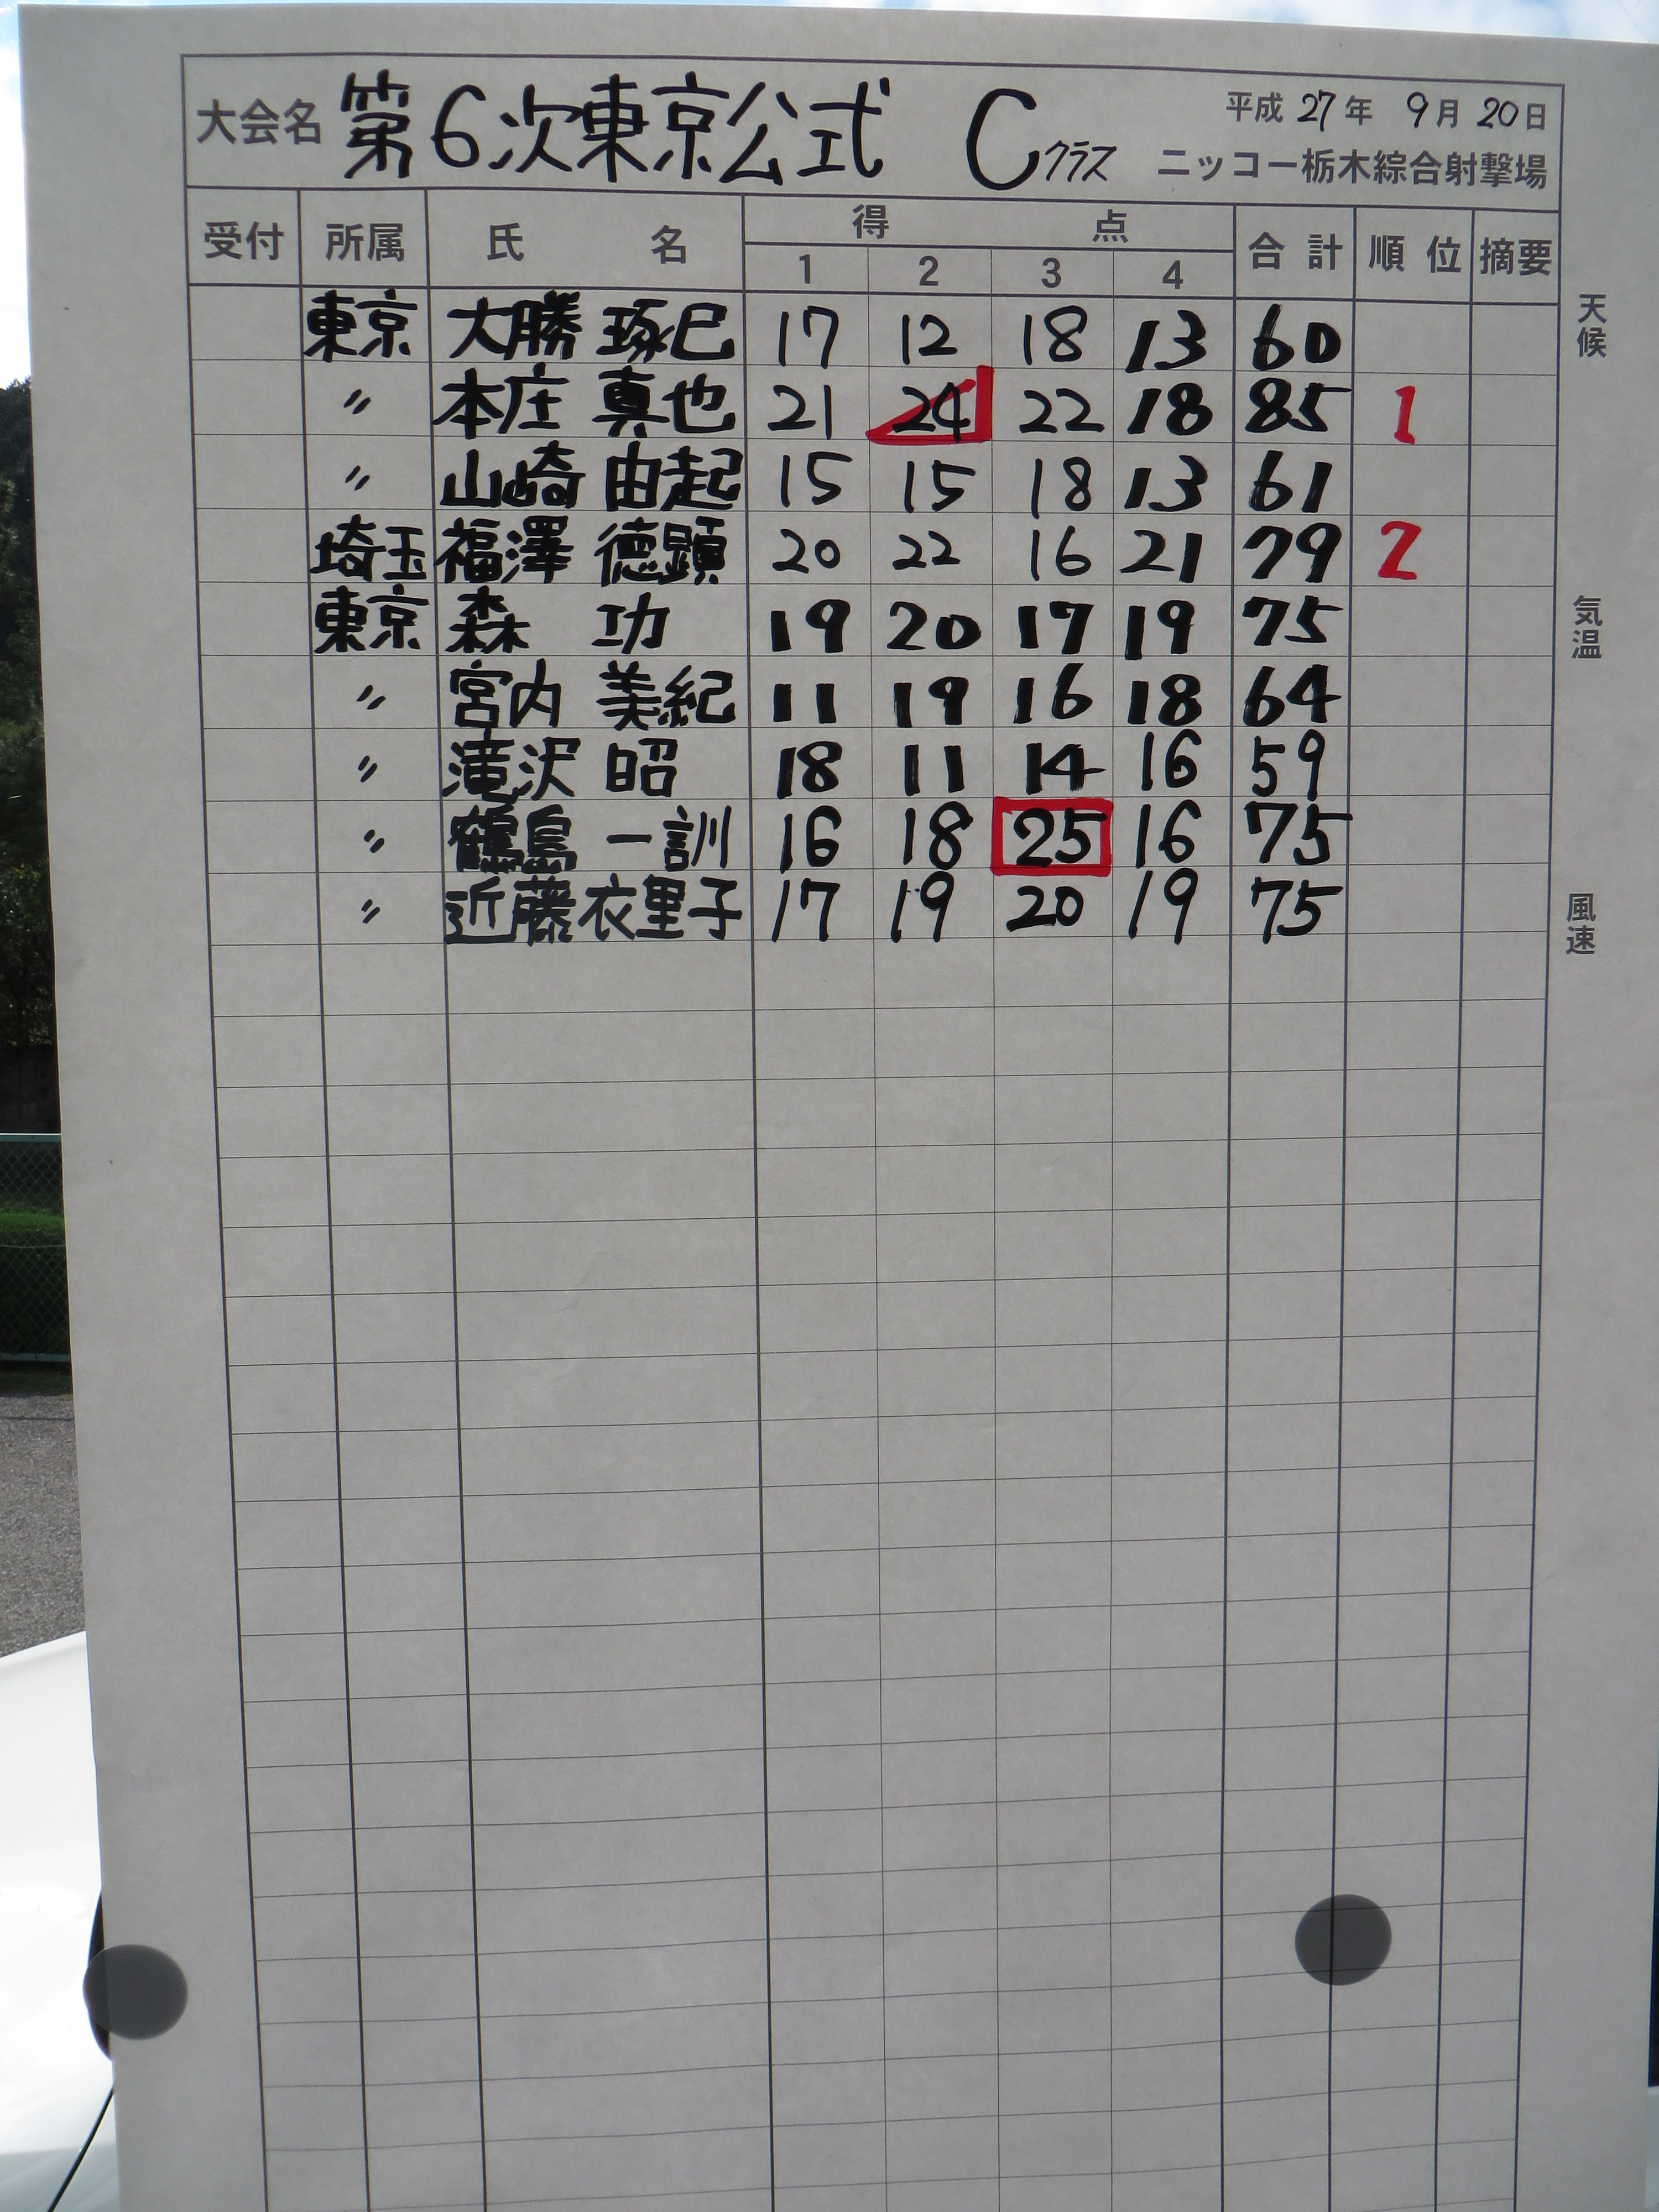 大会名 第6次東京公式 Cクラス 平成 27年 9月 20日
ニッコー栃木綜合射撃場
受付 所属 氏名 得点 合計 順位 摘要
1 2 3 4
東京 大勝 琢巳 17 12 18 13 60
〃 本庄 真也 21 24 22 18 85 1
〃 山崎 由起 15 15 18 13 61
埼玉 福澤 徳顕 20 22 16 21 79 2
東京 森 功 19 20 17 19 75
〃 宮内 美紀 11 19 16 18 64
〃 滝沢 昭 18 11 14 16 59
〃 鶴島 一訓 16 18 25 16 75
〃 近藤 衣里子 17 19 20 19 75
天候
気温
風速